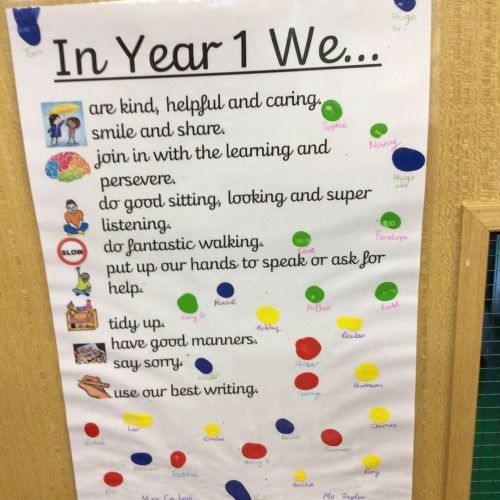 Hugo W.
In Year 1 We...
are kind, helpful and caring.
Sophie
smile and share.
Nancy
join in with the learning and
persevere.
do good sitting, looking and super
listening.
Penelope
SLOW
do fantastic walking.
put up our hands to speak or ask for
help.
Harry D
Arthur
tidy up.
Bobby
Reuben
have good manners.
say sorry.
George
Harrison
use our best writing.
Leo
James
Billie
Freddie
Harry S
Summer
Rory
Hallie
Bo
Ms Taylor